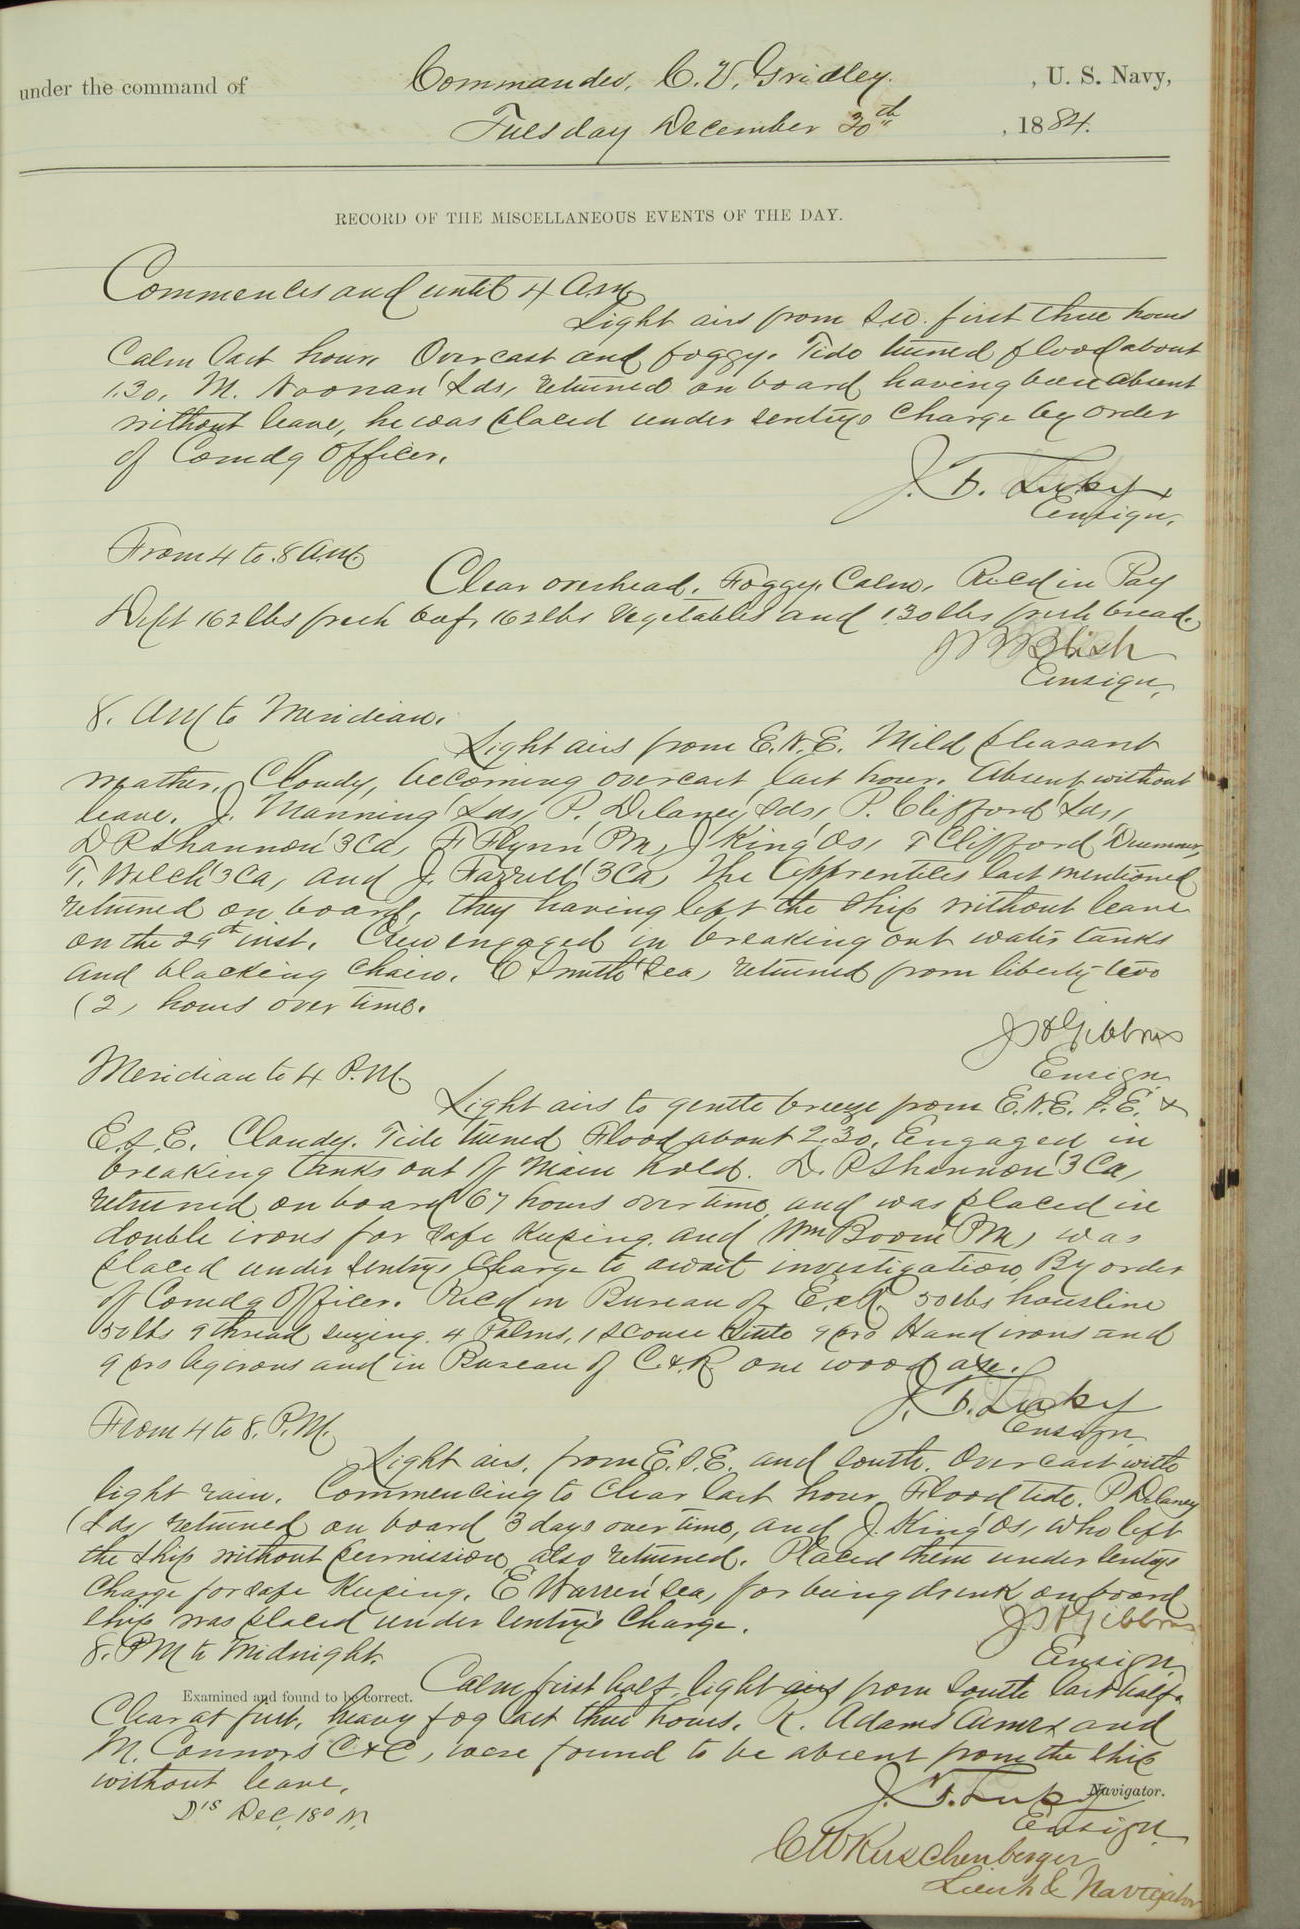 under the command of Commander, C. V. Gridley. , U. S. Navy,
Tuesday December 30th , 1884.
RECORD OF THE MISCELLANEOUS EVENTS OF THE DAY.
Commences and until 4 A.M.
Light airs from S.W. first three hours
Calm last hour. Overcast and foggy. Tide turned flood about
1.30. M. Noonan Lds, returned on board, having been absent
without leave, he was placed under sentrys charge by order
of Comdg Officer.
Ensign.
From 4 to 8 A.M.
Clear overhead. Foggy. Calm. Recd in Pay
Dept 162 lbs fresh beef, 162 lbs vegetables and 130 lbs fresh bread.
Ensign.
8. AM to Meridian.
Light airs from E.N.E. Mild pleasant
weather, Cloudy, becoming overcast last hour. Absent without
leave. J. Manning Lds, P. Delaney Lds, P. Clifford Lds,
D P Shannon 3Ca, F Flynn PM, J King Os, T Clifford Drummer,
T. Welch 3Ca, and J. Farrell 3Ca, The Apprentices last mentioned
returned on board, they having left the ship without leave
on the 29th inst. Crew engaged in breaking out water tanks
and blacking chain. C Smith Sea, returned from liberty two
(2) hours over time.
J H Gibbons
Ensign
Meridian to 4 P.M.
Light airs to gentle breeze from E.N.E. S.E. &
E.S.E. Cloudy. Tide turned Flood about 2.30. Engaged in
breaking tanks out of Main hold. D. P Shannon 3 Ca,
returned on board 67 hours over time, and was placed in
double irons for safe keeping, and Wm Boom PM, was
placed under sentrys charge to await investigation, By order
of Comdg Officer. Recd in Bureau of E. & R. 50 lbs housline
50 lbs 9 thread seizing, 4 Palms, 1 sconce 9 prs Hand irons and
9 prs leg irons and in Bureau of C. & R. one wood axe.
Ensign
From 4 to 8. P.M.
Light airs, from E.S.E. and South. Overcast with
light rain. Commencing to clear last hour. Flood tide. P Delaney
Lds, returned on board 3 days over time, and J. King Os, who left
the ship without permission, also returned. Placed them under sentrys
charge for safe keeping. E Warren Sea, for being drunk on board
ship was placed under sentrys charge.
J H Gibbons
Ensign
8. PM to Midnight.
Calm first half, light airs from South last half.
Examined and found to be correct.
Clear at first, heavy fog last three hours. R. Adams Armr and
M. Connors C&C, were found to be absent from the ship
without leave.
Navigator.
Ensign
Ds Dec. 18° N.
Lieut & Navigator